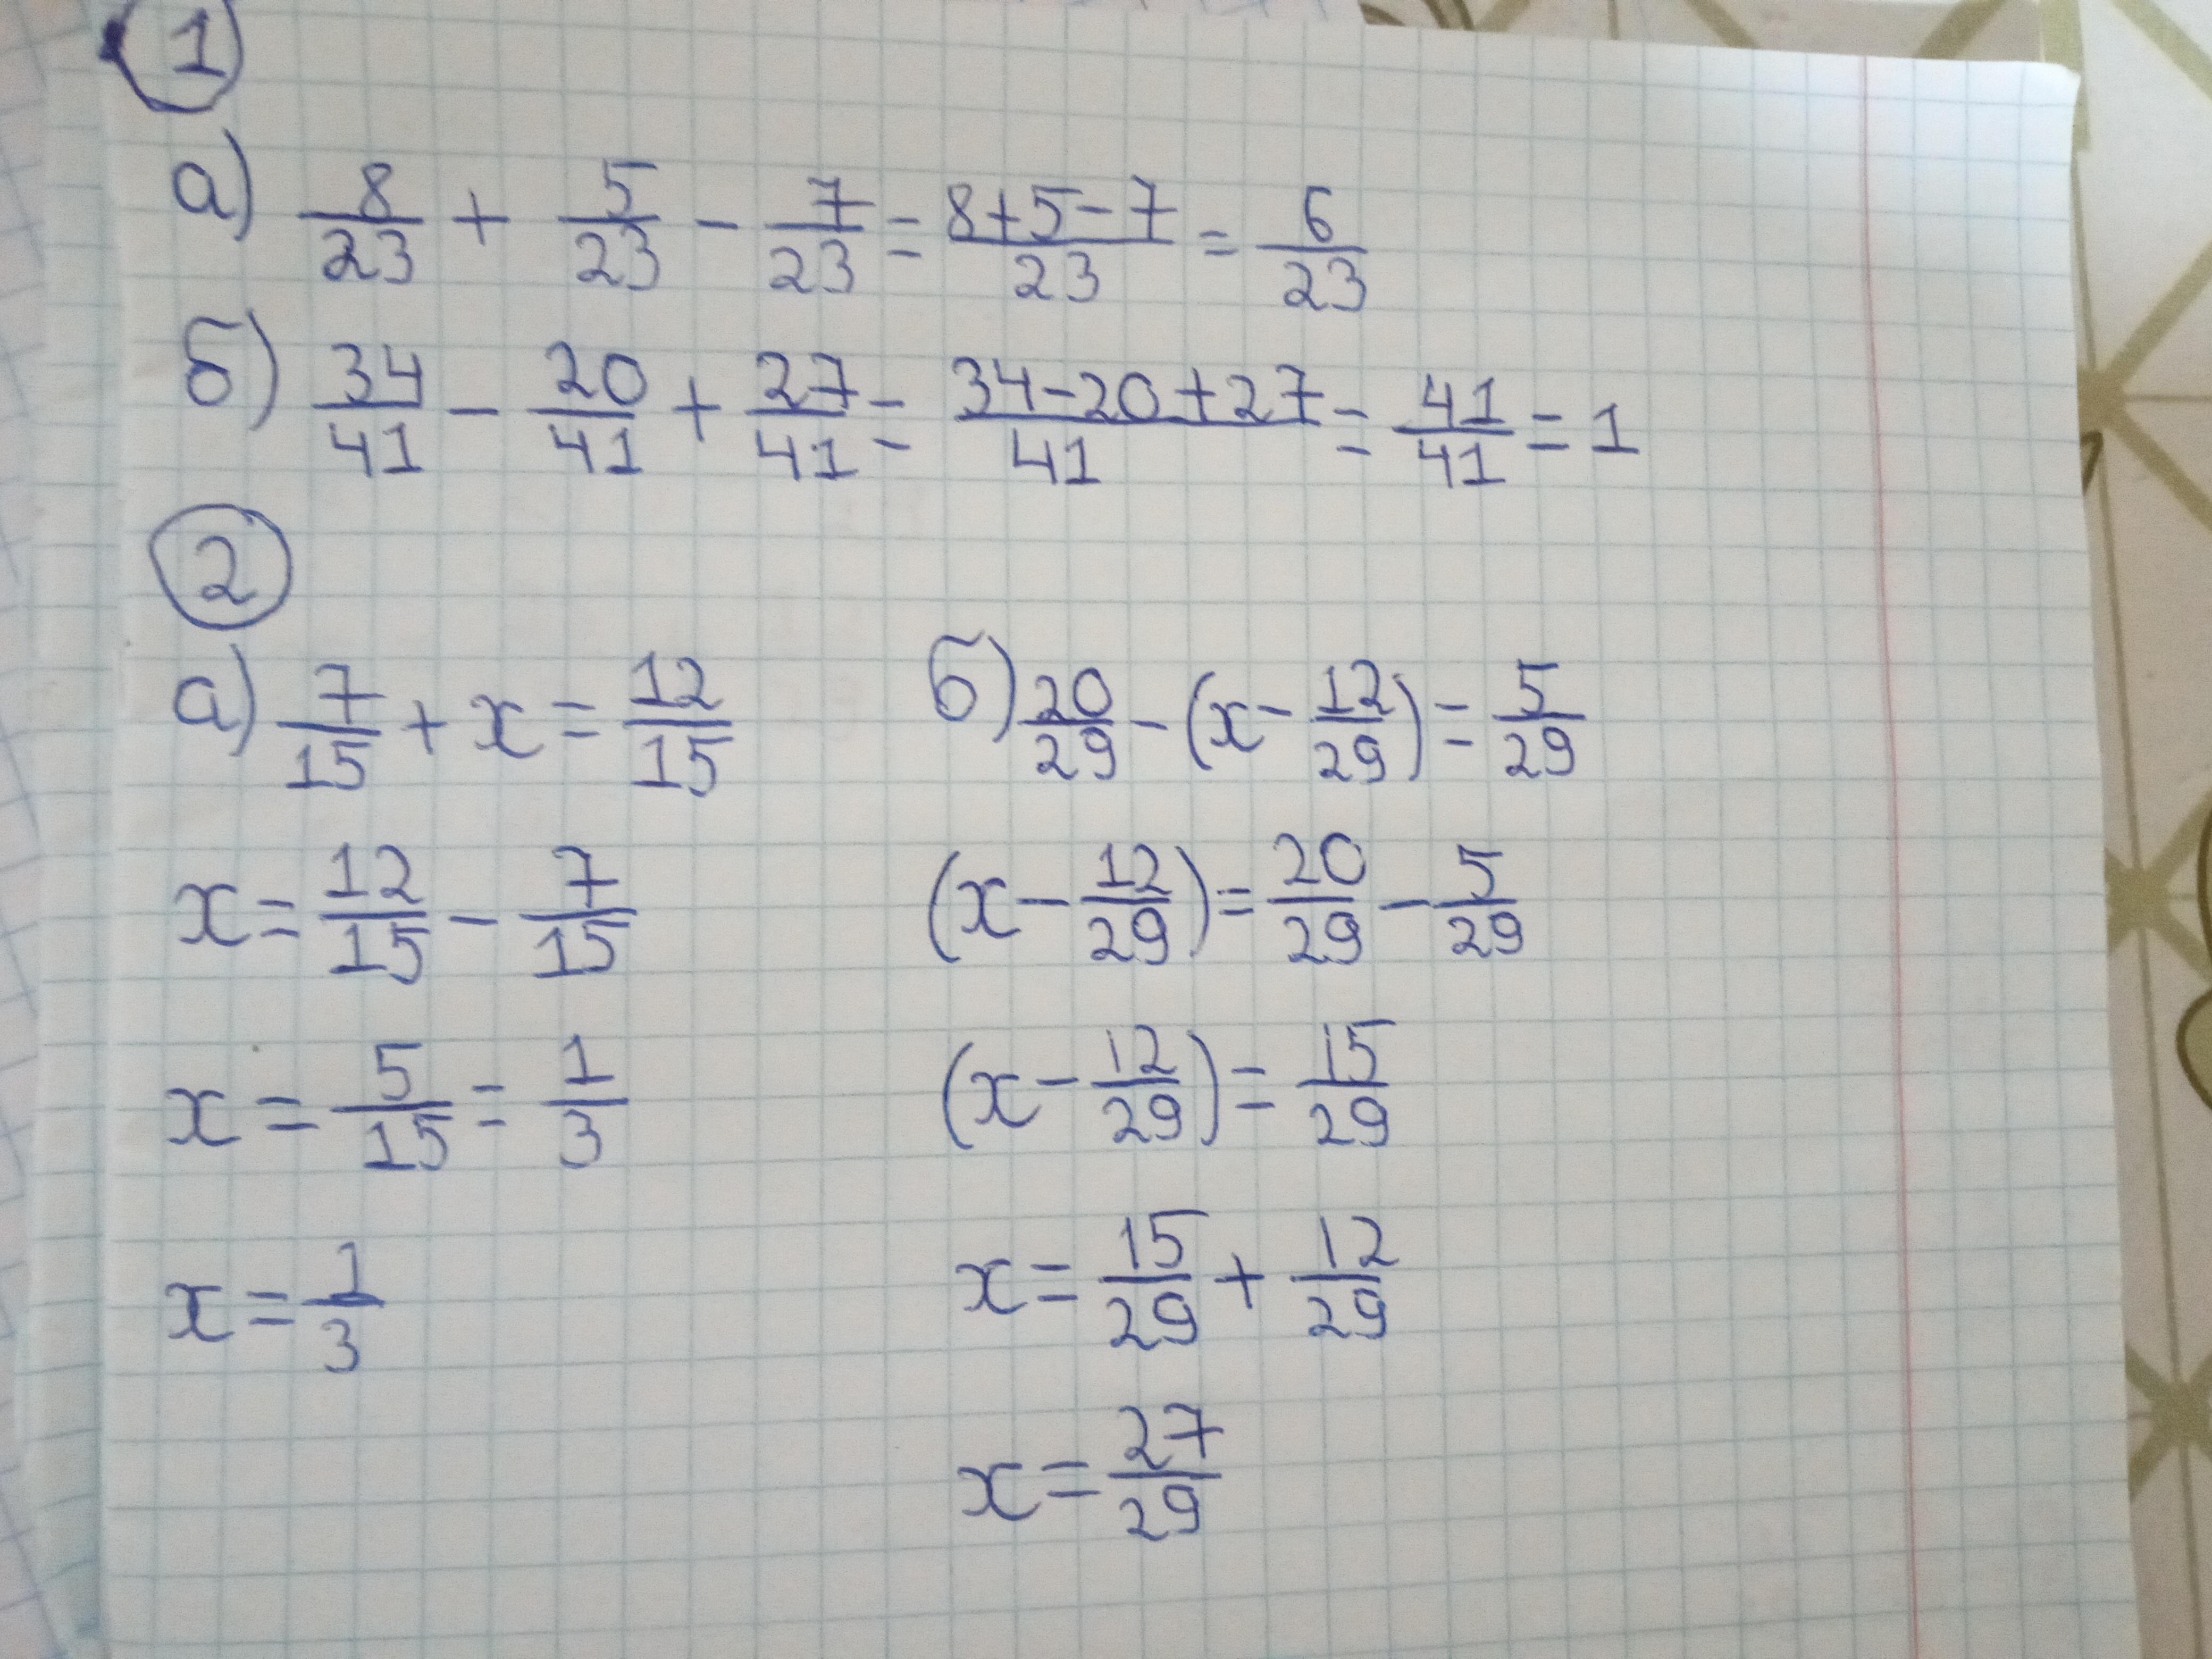 1
а) 8/23 + 5/23 - 7/23 = (8+5-7)/23 = 6/23
б) 34/41 - 20/41 + 27/41 = (34-20+27)/41 = 41/41 = 1
2
а) 7/15 + x = 12/15
x = 12/15 - 7/15
x = 5/15 = 1/3
x = 1/3
б) 20/29 - (x - 12/29) = 5/29
(x - 12/29) = 20/29 - 5/29
(x - 12/29) = 15/29
x = 15/29 + 12/29
x = 27/29